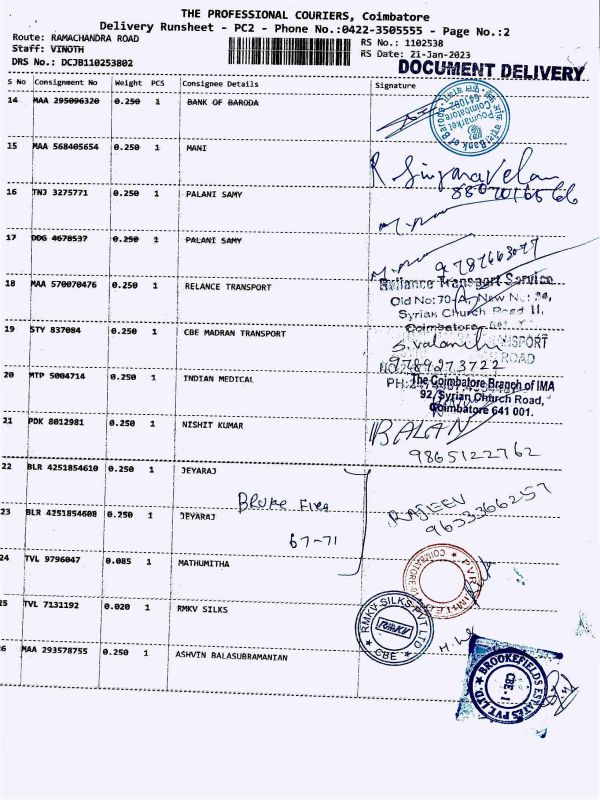 THE PROFESSIONAL COURIERS, Coimbatore
Delivery Runsheet - PC2 - Phone No.:0422-3505555 - Page No.:2
Route: RAMACHANDRA ROAD
RS No.: 1102538
Staff: VINOTH
RS Date: 21-Jan-2023
DRS No.: DCJB110253802
DOCUMENT DELIVERY
S No Consignment No Weight PCS Consignee Details Signature
14 MAA 295096320 0.250 1 BANK OF BARODA
15 MAA 568405654 0.250 1 MANI
16 TNJ 3275771 0.250 1 PALANI SAMY
17 DDG 4678537 0.250 1 PALANI SAMY
9787663077
18 MAA 570070476 0.250 1 RELANCE TRANSPORT
Reliance Transport Service
Old No: 70-A, New No:
Syrian Church Road II,
Coimbatore
19 STY 837084 0.250 1 CBE MADRAN TRANSPORT
9789273722
20 MTP 5004714 0.250 1 INDIAN MEDICAL
The Coimbatore Branch of IMA
92, Syrian Church Road,
Coimbatore 641 001.
21 PDK 8012981 0.250 1 NISHIT KUMAR
BALAN
9865122762
22 BLR 4251854610 0.250 1 JEYARAJ
23 BLR 4251854608 0.250 1 JEYARAJ
67-71
RAJEEV
9633366257
24 TVL 9796047 0.085 1 MATHUMITHA
25 TVL 7131192 0.020 1 RMKV SILKS
RMKV SILKS PVT LTD
RMKV
CBE
26 MAA 293578755 0.250 1 ASHVIN BALASUBRAMANIAN
BROOKEFIELDS ESTATES PVT. LTD.
CBE-1